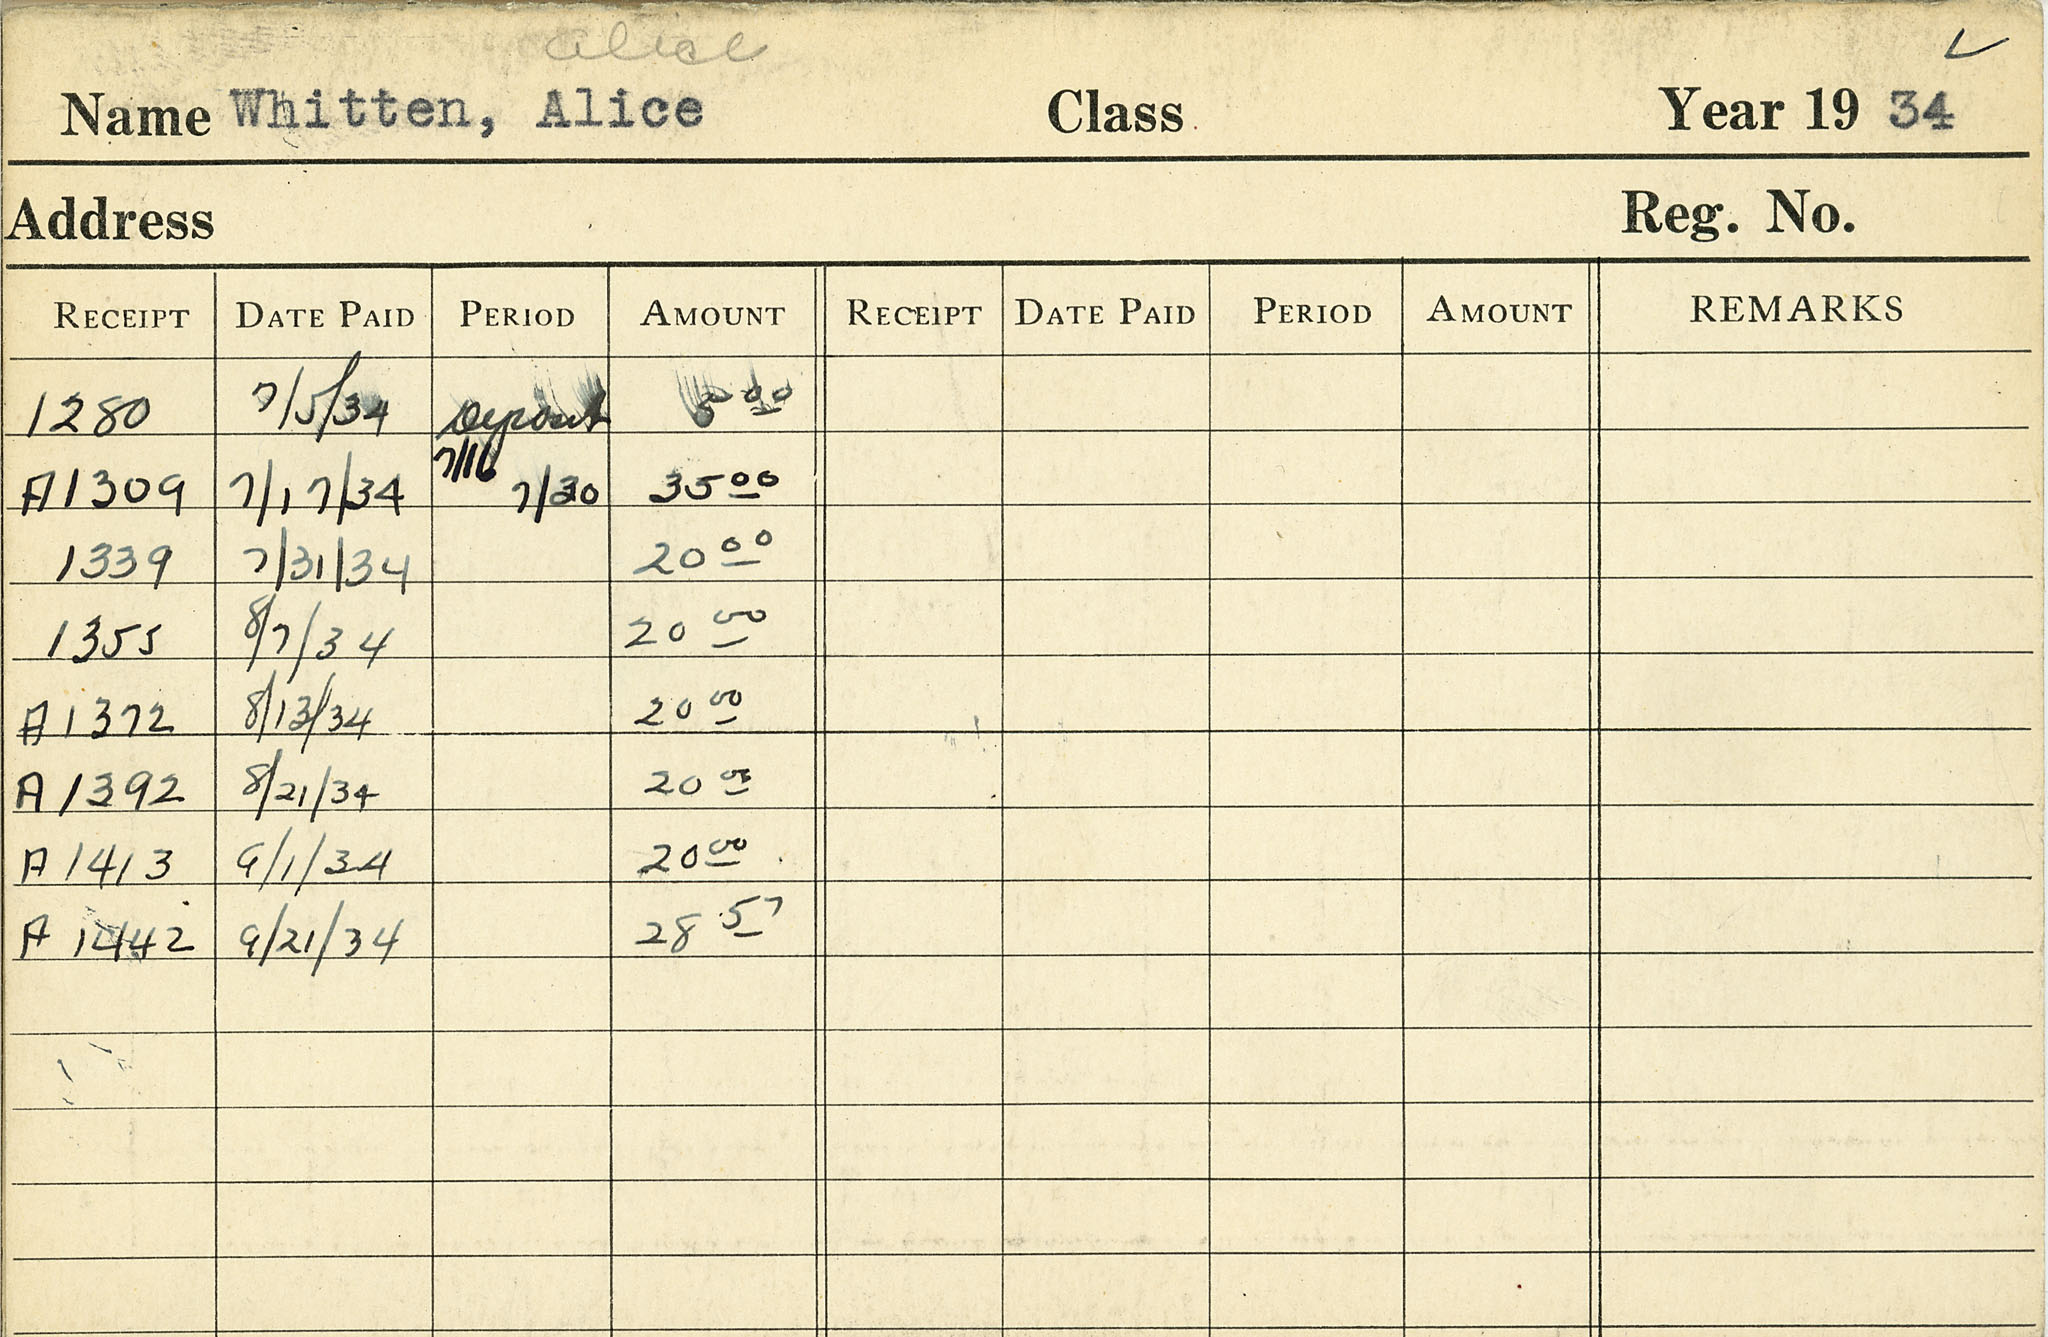 alice
Name Whitten, Alice Class Year 19 34
Address Reg. No.
RECEIPT DATE PAID PERIOD AMOUNT RECEIPT DATE PAID PERIOD AMOUNT REMARKS
1280 7/5/34 Deposit 5 00
7/16
A1309 7/17/34 7/30 35 00
1339 7/31/34 20 00
1355 8/7/34 20 00
A1372 8/13/34 20 00
A1392 8/21/34 20 00
A1413 9/1/34 20 00
A1442 9/21/34 28 57